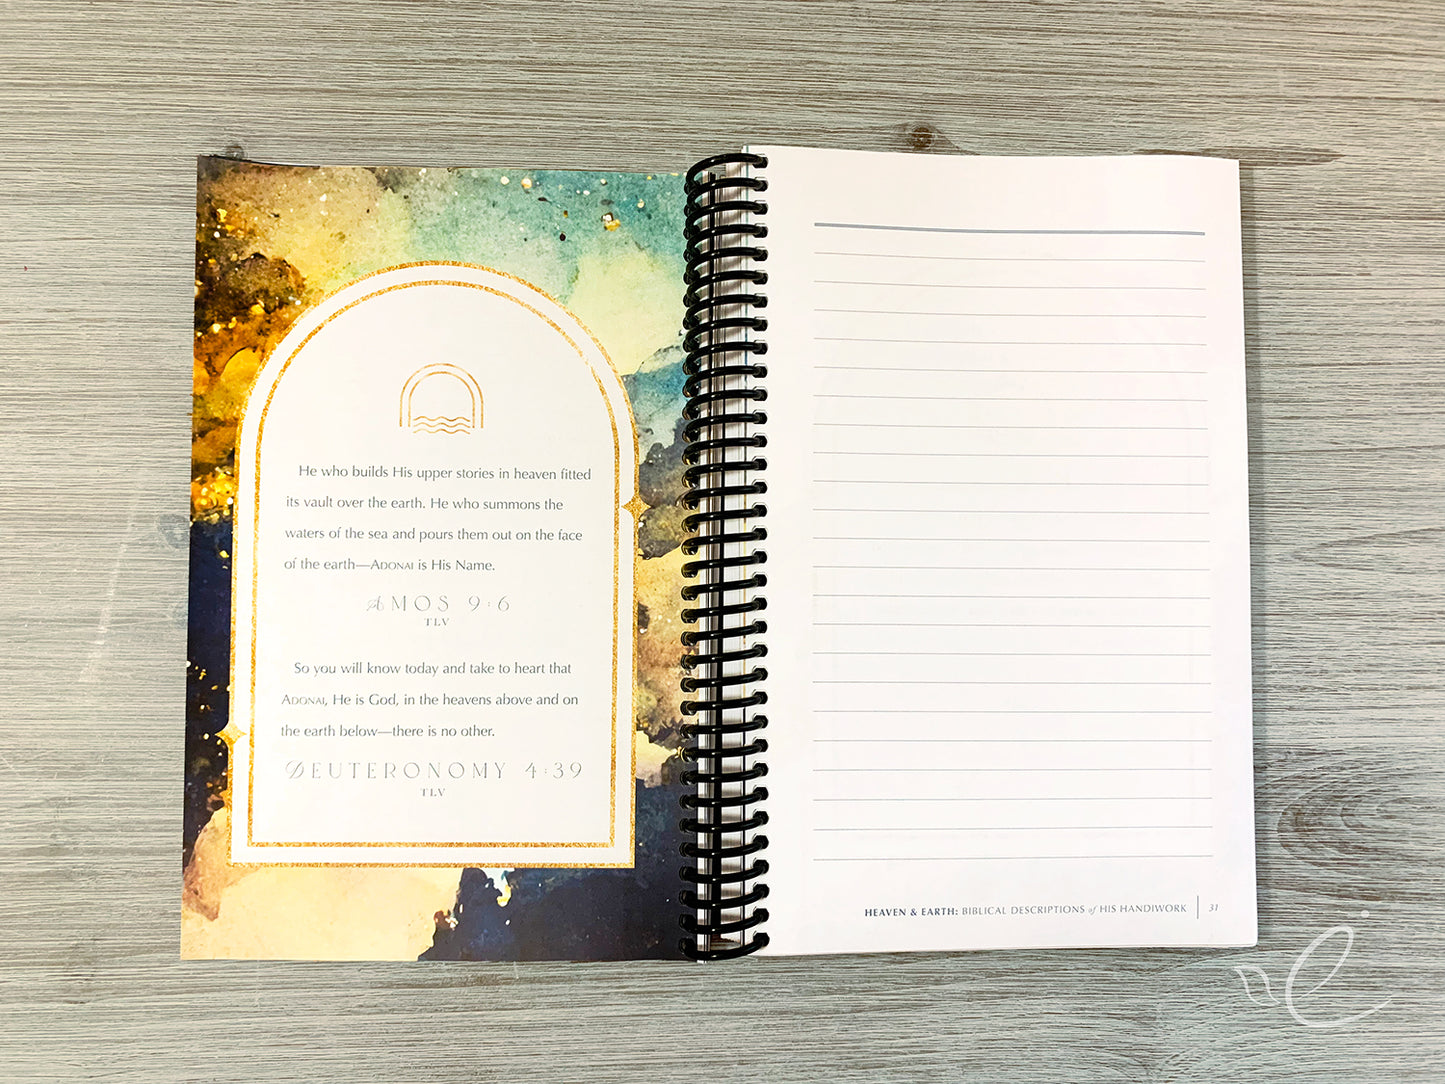 He who builds His upper stories in heaven fitted
its vault over the earth. He who summons the
waters of the sea and pours them out on the face
of the earth—ADONAI is His Name.
AMOS 9:6
TLV
So you will know today and take to heart that
ADONAI, He is God, in the heavens above and on
the earth below—there is no other.
DEUTERONOMY 4:39
TLV
HEAVEN & EARTH: BIBLICAL DESCRIPTIONS of HIS HANDIWORK 31